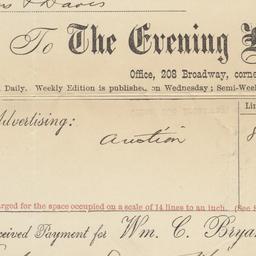 & Davis
To The Evening
Office, 208 Broadway, corne
Daily. Weekly Edition is published on Wednesday; Semi-Week
Li
Advertising:
auction
arged for the space occupied on a scale of 14 lines to an inch. (See
ceived Payment for Wm. C. Brya